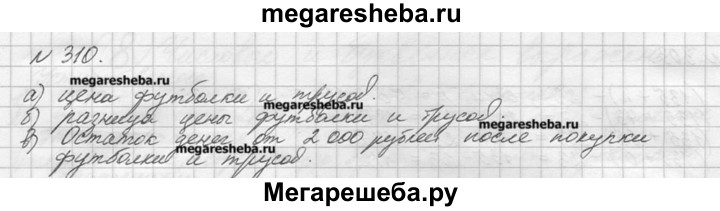 megaresheba.ru
№ 310.
megaresheba.ru
а) цена футболки и трусов.
б) разница цены футболки и трусов.
megaresheba.ru
в) Остаток денег от 2 000 рублей после покупки
megaresheba.ru
футболки и трусов.
Мегарешеба.ру